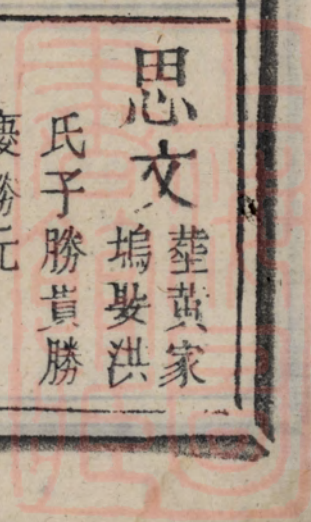 思文
塟黄家
塢娶洪
氏子勝貢勝
慶勝元